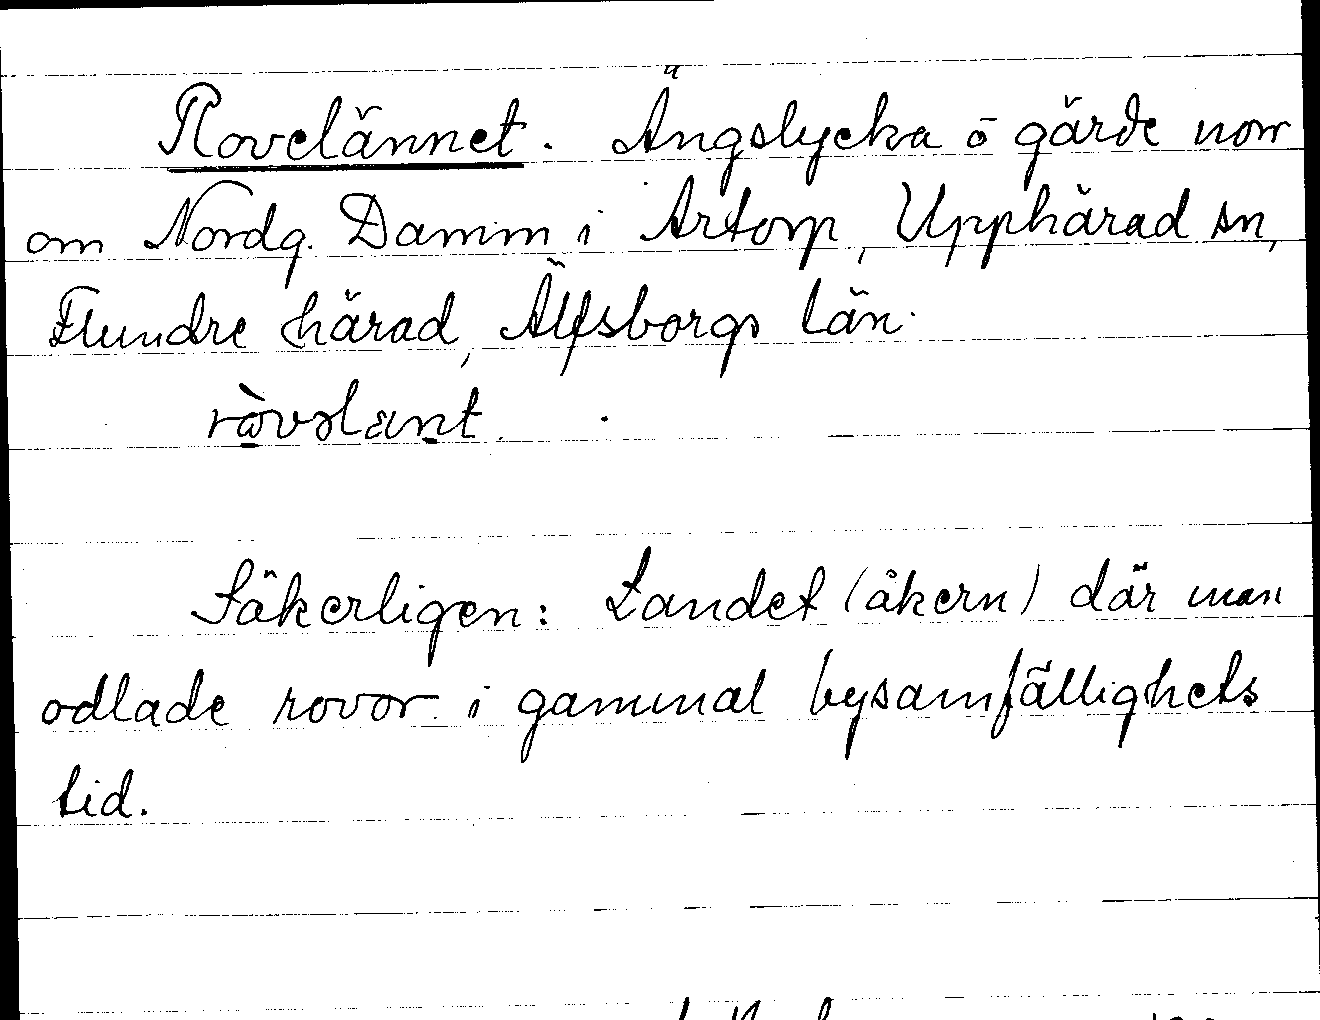 Rovelännet. Ängslycka ō gärde norr
om Nordg. Damm i Artorp, Upphärad sn,
Flundre härad, Älfsborgs län.
rò̱vəlæn̠t.
Säkerligen: Landet (åkern) där man
odlade rovor i gammal bysamfällighets
tid.